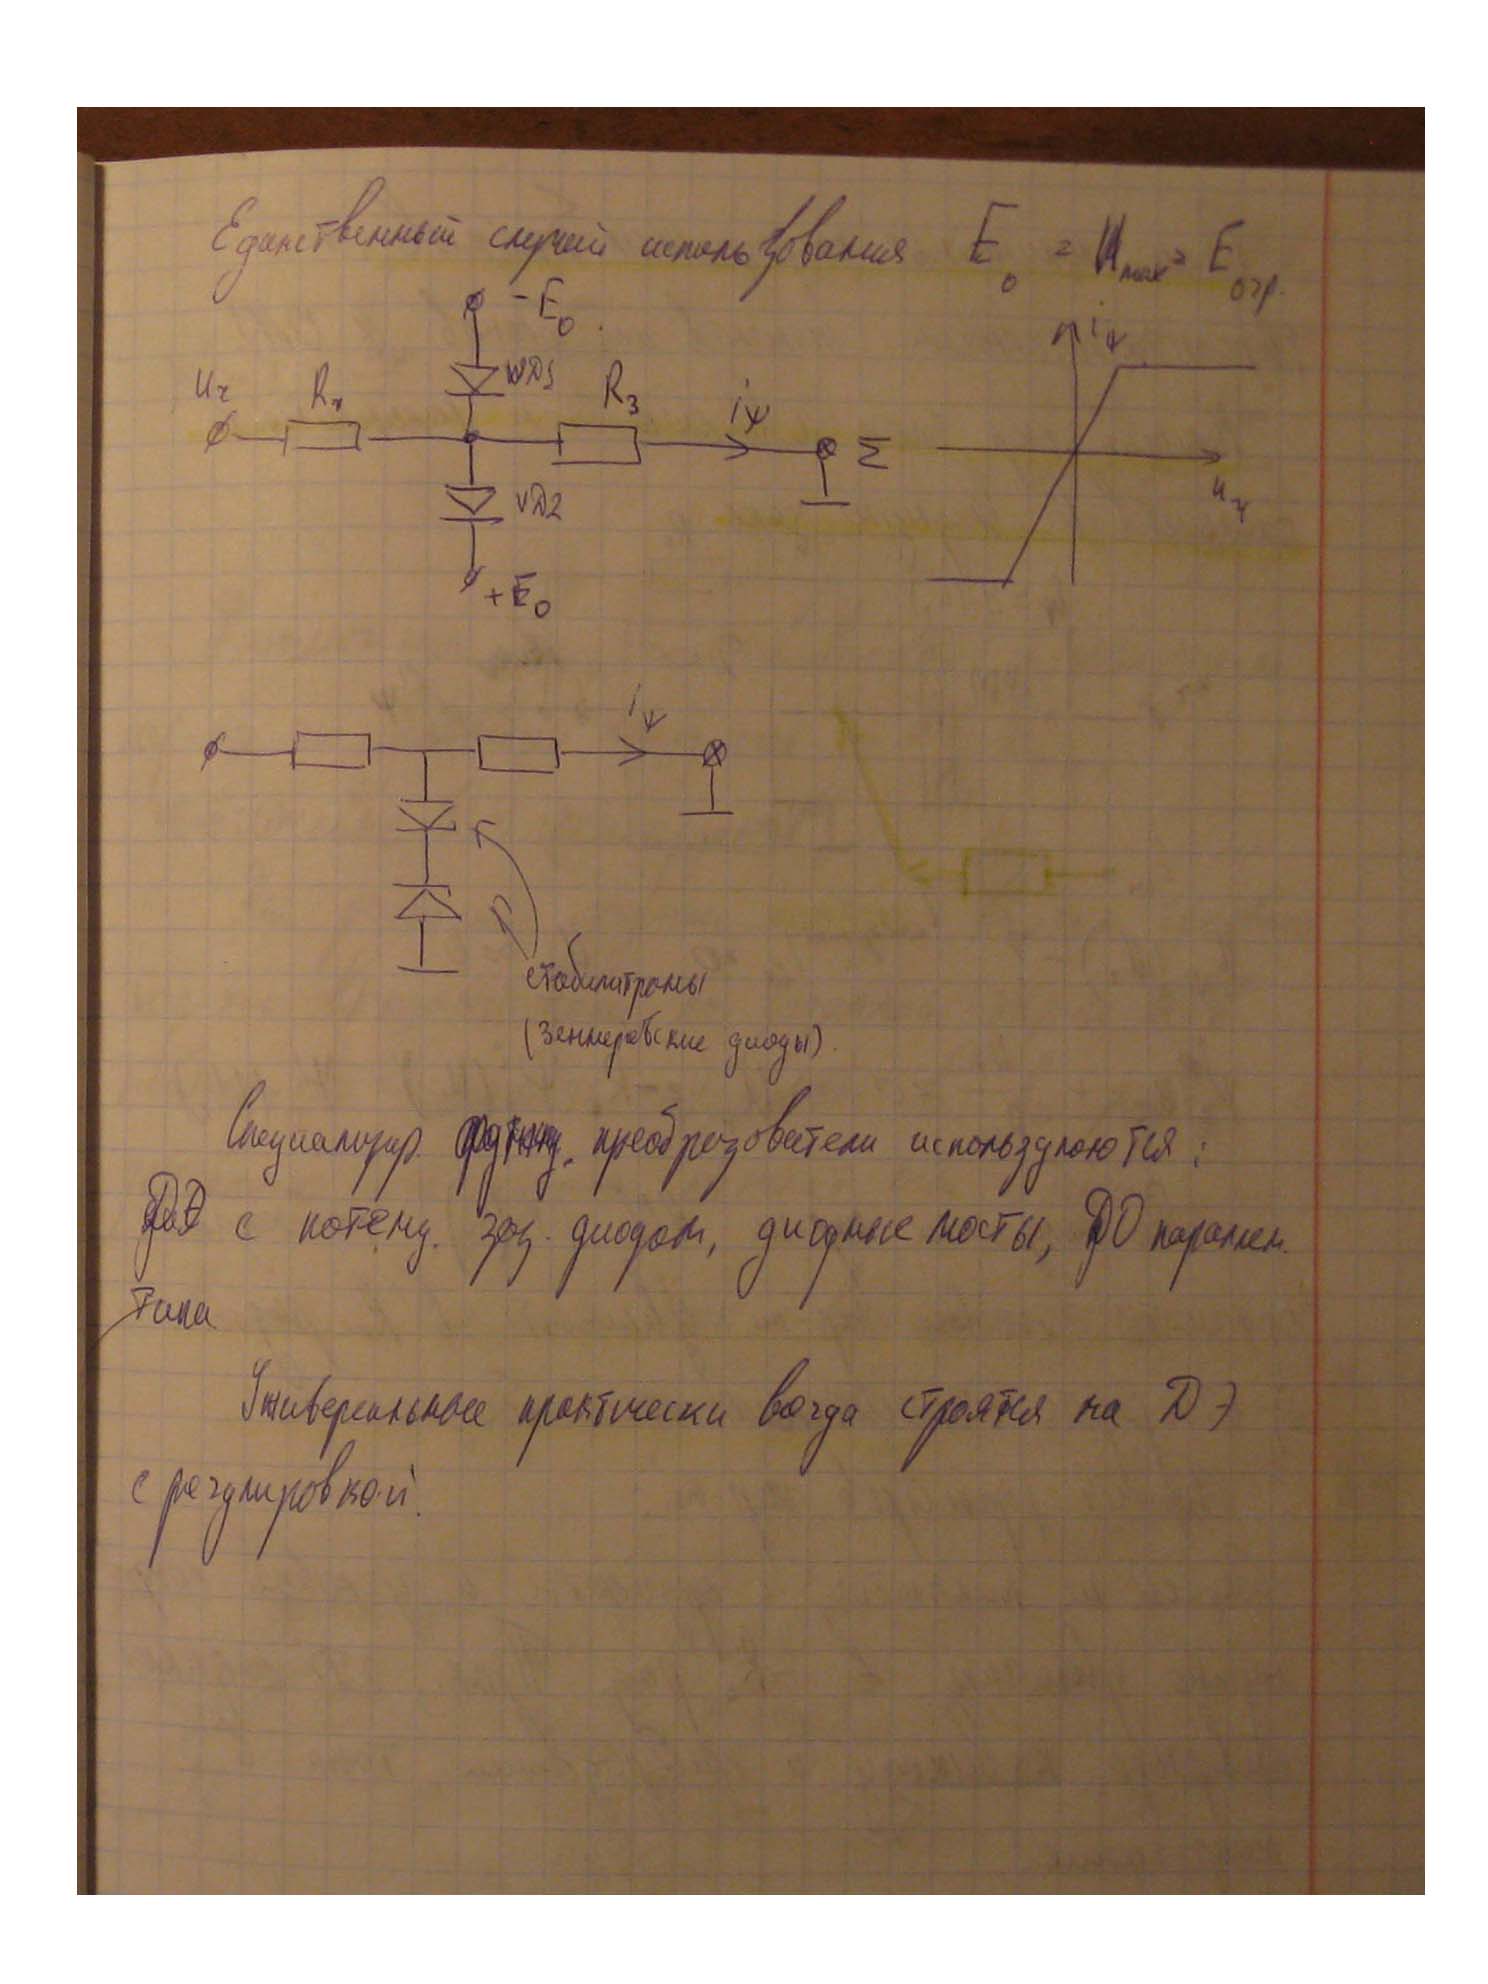 Единственный случай использования E₀ = Umax = Eогр.
-E₀.
Ux Rx VD1 R3 iψ Σ
VD2
+E₀
iψ
Ux
iψ
стабилитроны
(Зеннеровские диоды).
Специализир. функц. преобразователи используются:
с потенц. заз. диодом, диодные мосты, ДО паралел.
типа
Универсальные практически всегда строятся на ДЭ
с регулировкой.